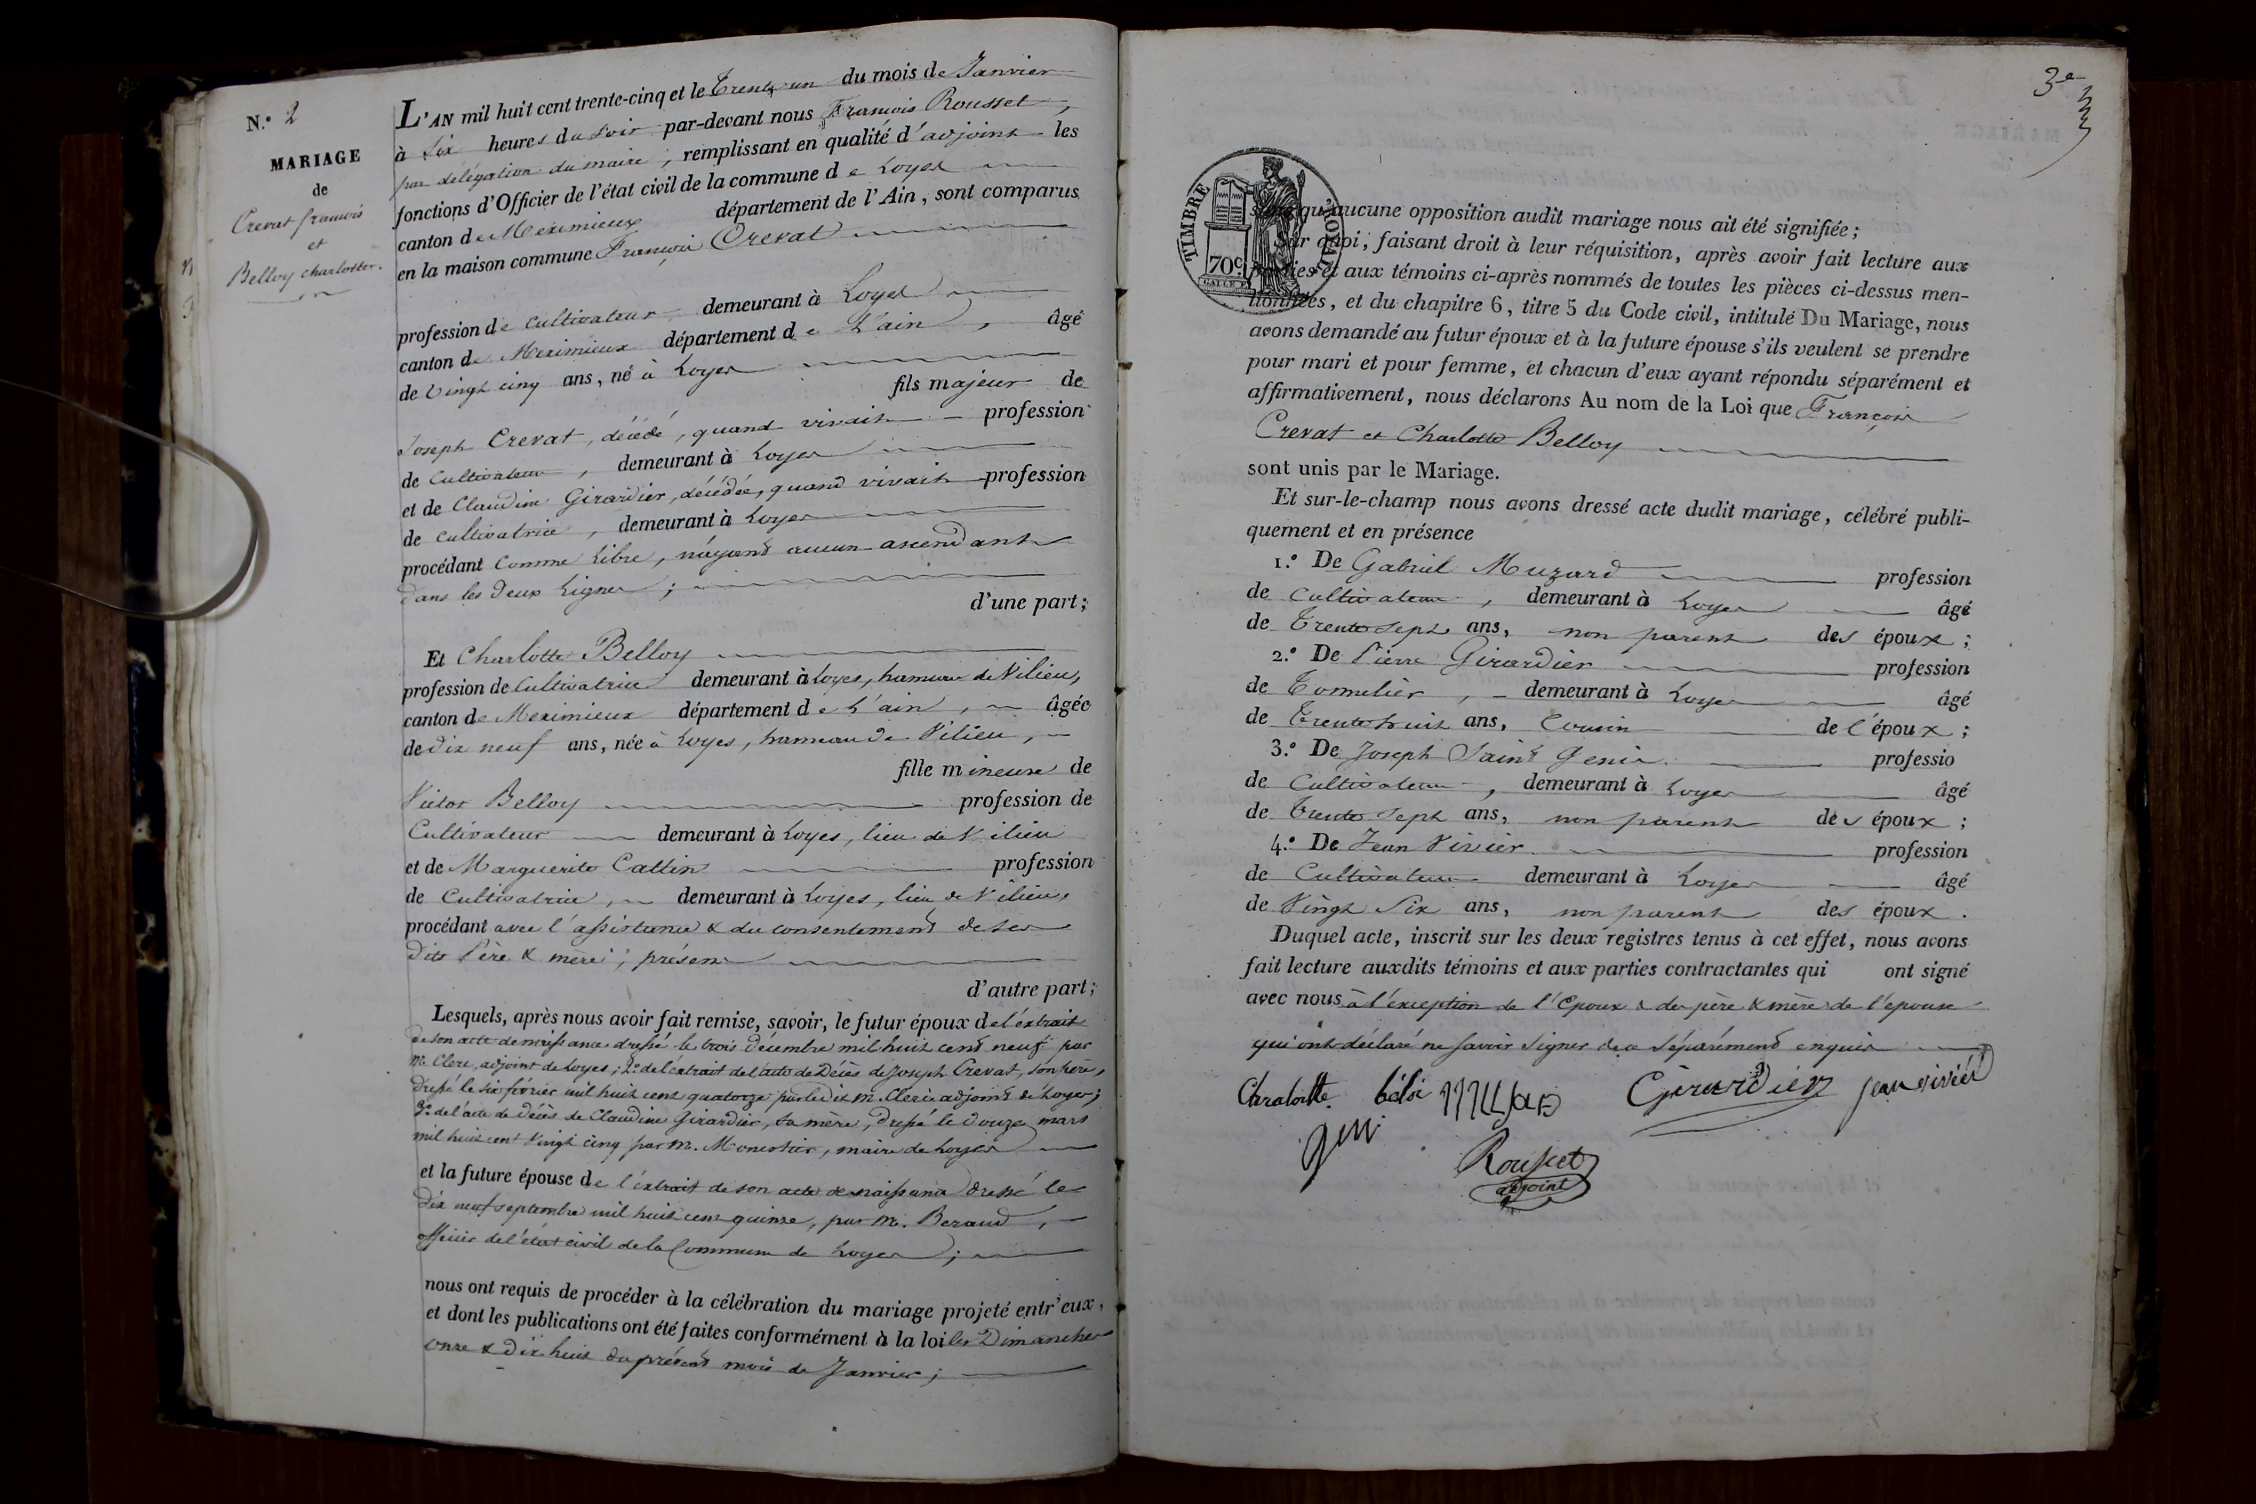 N.º 2
MARIAGE
de
Crevat françois
et
Belloy charlotte.
L'AN mil huit cent trente-cinq et le Trente un du mois de Janvier
à Six heures du soir par-devant nous François Rousset,
par délégation du maire, remplissant en qualité d'adjoint les
fonctions d'Officier de l'état civil de la commune de Loyes
canton de Meximieux département de l'Ain, sont comparus
en la maison commune François Crevat
profession de cultivateur demeurant à Loyes
canton de Meximieux département de L'ain, âgé
de Vingt cinq ans, né à Loyes
fils majeur de
Joseph Crevat, décédé, quand vivait profession
de Cultivateur, demeurant à Loyes
et de Claudine Girardier, décédée, quand vivait profession
de cultivatrice, demeurant à Loyes
procédant Comme Libre, n'ayant aucun ascendant
dans les deux Lignes;
d'une part;
Et Charlotte Belloy
profession de Cultivatrice demeurant à Loyes, hameau de Vilieu,
canton de Meximieux département de L'ain, âgée
de dix neuf ans, née à Loyes, hameau de Vilieu,
fille mineure de
Victor Belloy profession de
Cultivateur demeurant à Loyes, lieu de Vilieu
et de Marguerite Cattin profession
de Cultivatrice, demeurant à Loyes, lieu de Vilieu,
procédant avec l'assistance & du consentement de ses
dits Père & mère, présens
d'autre part;
Lesquels, après nous avoir fait remise, savoir, le futur époux de l'extrait
de son acte de naissance dressé le trois décembre mil huit cent neuf par
Mr. Clerc, adjoint de Loyes; 2.º de l'extrait de l'acte de Décès de Joseph Crevat, son père,
dressé le six février mil huit cent quatorze par ledit M. Clerc adjoint de Loyes;
3.º de l'acte de Décès de Claudine Girardier, sa mère, dressé le douze mars
mil huit cent Vingt cinq par M. Monestier, maire de Loyes
et la future épouse de l'extrait de son acte de naissance dressé le
dix neuf septembre mil huit cent quinze, par M. Beraud,
officier de l'état civil de la Commune de Loyes;
nous ont requis de procéder à la célébration du mariage projeté entr'eux,
et dont les publications ont été faites conformément à la loi les Dimanches
onze & dix huit du présent mois de Janvier;
3e
TIMBRE ROYAL
70c.
sans qu'aucune opposition audit mariage nous ait été signifiée;
Sur quoi, faisant droit à leur réquisition, après avoir fait lecture aux
parties et aux témoins ci-après nommés de toutes les pièces ci-dessus men-
tionnées, et du chapitre 6, titre 5 du Code civil, intitulé Du Mariage, nous
avons demandé au futur époux et à la future épouse s'ils veulent se prendre
pour mari et pour femme, et chacun d'eux ayant répondu séparément et
affirmativement, nous déclarons Au nom de la Loi que François
Crevat et Charlotte Belloy
sont unis par le Mariage.
Et sur-le-champ nous avons dressé acte dudit mariage, célébré publi-
quement et en présence
1.º De Gabriel Muzard profession
de Cultivateur, demeurant à Loyes âgé
de Trente sept ans, non parent des époux;
2.º De Pierre Girardier profession
de Tonnelier, demeurant à Loyes âgé
de Trente huit ans, Cousin de l'époux;
3.º De Joseph Saint Genis professio
de Cultivateur, demeurant à Loyes âgé
de Trente sept ans, non parent des époux;
4.º De Jean Vivier profession
de Cultivateur demeurant à Loyes âgé
de Vingt Six ans, non parent des époux.
Duquel acte, inscrit sur les deux registres tenus à cet effet, nous avons
fait lecture auxdits témoins et aux parties contractantes qui ont signé
avec nous à l'exception de l'Epoux & des père & mère de l'epouse
qui ont déclaré ne savoir signer de ce séparément enquis
Charlotte béloi Muzard Girardier jean vivier
geni
Rousset
adjoint